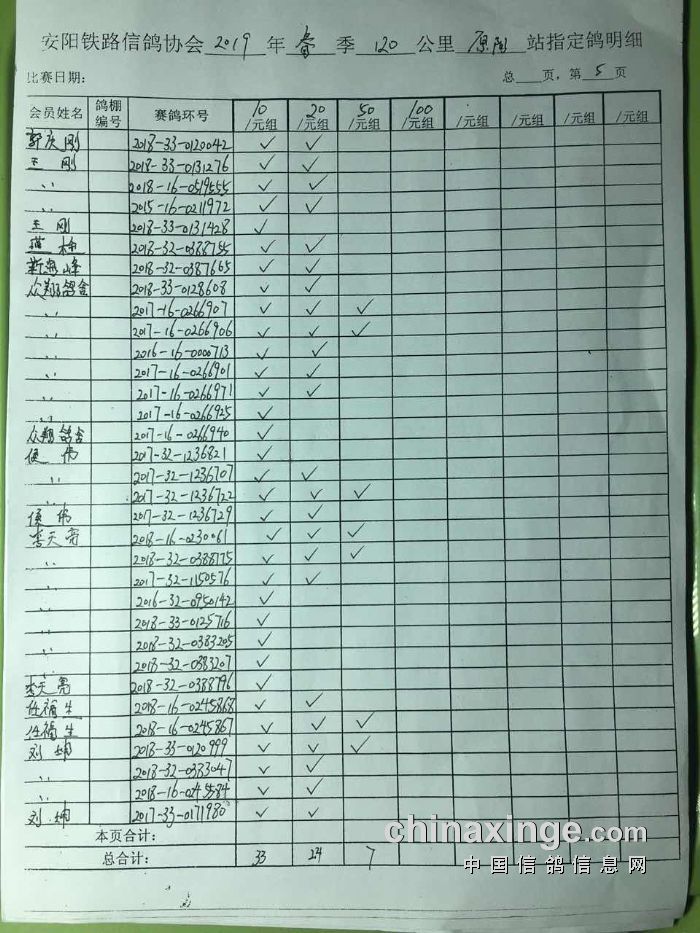 安阳铁路信鸽协会 2019 年 春 季 120 公里 原阳 站指定鸽明细
比赛日期： 总 页，第 5 页
会员姓名 鸽棚编号 赛鸽环号 10/元组 20/元组 50/元组 100/元组 /元组 /元组 /元组 /元组
郭庆刚 2018-33-0120042 ✓ ✓
王刚 2018-33-0131276 ✓ ✓
〃 2018-16-0519555 ✓ ✓
〃 2015-16-0211972 ✓ ✓
王刚 2018-33-0131428 ✓
2018-32-0388755 ✓ ✓
靳海峰 2018-32-0387665 ✓ ✓
众翔鸽舍 2018-33-0128608 ✓ ✓
〃 2017-16-0266907 ✓ ✓ ✓
〃 2017-16-0266906 ✓ ✓ ✓
〃 2016-16-0000713 ✓ ✓
〃 2017-16-0266901 ✓ ✓
〃 2017-16-0266971 ✓ ✓
〃 2017-16-0266925 ✓
众翔鸽舍 2017-16-0266940 ✓
侯伟 2017-32-1236821 ✓
〃 2017-32-1236707 ✓ ✓
〃 2017-32-1236722 ✓ ✓ ✓
侯伟 2017-32-1236729 ✓ ✓
李天亮 2018-16-0230061 ✓ ✓ ✓
〃 2018-32-0388775 ✓ ✓ ✓
〃 2017-32-1150576 ✓ ✓
〃 2016-32-0950142 ✓
〃 2018-33-0125716 ✓
〃 2018-32-0383205 ✓
〃 2018-32-0383207 ✓
李天亮 2018-32-0388796 ✓
任福生 2018-16-0245868 ✓ ✓
任福生 2018-16-0245867 ✓ ✓ ✓
刘坤 2018-33-0120999 ✓ ✓ ✓
〃 2018-32-0383047 ✓ ✓
〃 2018-16-0245584 ✓ ✓
刘坤 2017-33-0171980 ✓ ✓
本页合计：
总合计： 33 24 7
chinaxinge.com
中国信鸽信息网